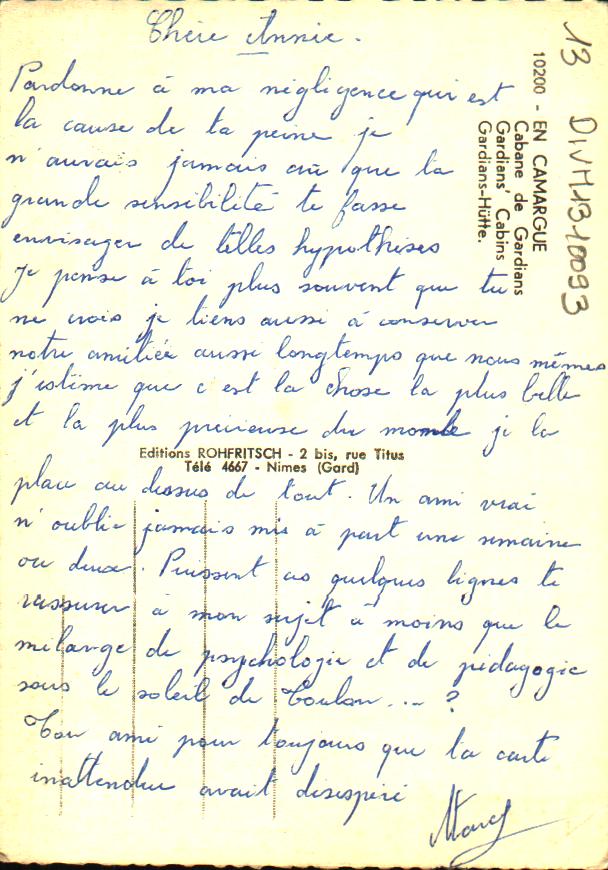 Chère Annie.
Pardonne à ma négligence qui est
la cause de ta peine je
n'aurais jamais cru que ta
grande sensibilité te fasse
envisager de telles hypothèses
Je pense à toi plus souvent que tu
ne crois je tiens aussi à conserver
notre amitiée aussi longtemps que nous mêmes
j'estime que c'est la chose la plus belle
et la plus précieuse du monde je la
place au dessus de tout. Un ami vrai
n'oublie jamais mis à part une semaine
ou deux. Puissent ces quelques lignes te
rassurer à mon sujet à moins que le
mélange de psychologie et de pédagogie
sous le soleil de Toulon... ?
Ton ami pour toujours que la carte
inattendue avait désespéré
10200 - EN CAMARGUE
Cabane de Gardians
Gardians' Cabins
Gardians-Hütte.
13 DIVH1310093
Editions ROHFRITSCH - 2 bis, rue Titus
Télé 4667 - Nimes (Gard)